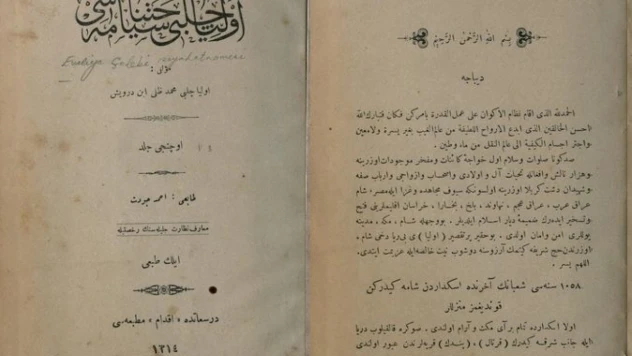 اوليا چلبی سياحتنامه‌سی
Evliya Çelebi siyahatnamesi
مؤلفی :
اوليا چلبی محمد ظلی ابن درويش
اوچنجی جلد
طابعی : احمد جودت
معارف نظارت جليله‌سنك رخصتيله
ايلك طبعی
درسعادتده « اقدام » مطبعه‌سی
١٣١٤
بسم الله الرحمن الرحيم
ديباجه
الحمدلله الذی اقام نظام الاكوان علی عمل القدرة بامركن فكان فتبارك الله
احسن الخالقين الذی ابدع الارواح اللطيفة من عالم الغيب بغير يسرة ولامعين
واجتر اجسام الكيفية الی عالم النقل من ماء وطين .
صدكونا صلوات وسلام اول خواجهٔ كائنات ومفخر موجودات اوزرينه
وهزار تالش وافعاله تحيات آل و اولادی واصحاب وازواجی وارباب صفه
وشهيدان دشت كربلا اوزرينه اولسونكه سيوف مجاهده وغزا ايله مصر، شام
عراق عرب ، عراق عجم ، نهاوند ، بلخ ، بخارا ، خراسان اقليملرينی فتح
وتسخير ايده‌رك ضميمهٔ ديار اسلام ايلديلر . بووجهله شام ، مكه ، مدينه
يوللری امن وامان اولدی . بوحقير پرتقصير ( اوليا ) ی بی‌ريا دخی شام ،
اوزرندن حج شريفه كيتمك آرزوسنه دوشوب نيت خالصه ايله عزيمت ايتدی .
اللهم يسر .
١٠٥٨ سنه‌سی شعبانك آخرنده اسكداردن شامه كيدركن
قونديغمز منزللر
اولا اسكدارده تمام بر آی مكث و آرام اولندی . صوكره قالقيلوب دريا
ايله جانب شرقه كيده‌رك ( قرتال ) ، ( پندك ) قريه‌لرندن عبور اولندی